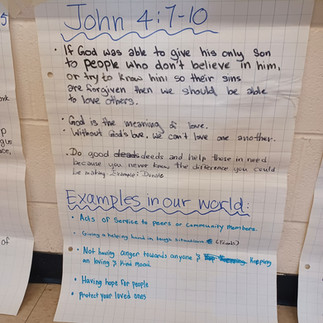 John 4:7-10
• If God was able to give his only son
to people who don't believe in him,
or try to know him so their sins
are forgiven then we should be able
to love others.
• God is the meaning of love.
• Without God's love, we can't love one another.
• Do good deeds and help those in need
because you never know the difference you could
be making. Example: Donate
Examples in our world:
• Acts of Service to peers or community members.
• Giving a helping hand in tough situations
• Not having anger towards anyone & keeping
an loving & kind mood
• Having hope for people
• Protect your loved ones
of